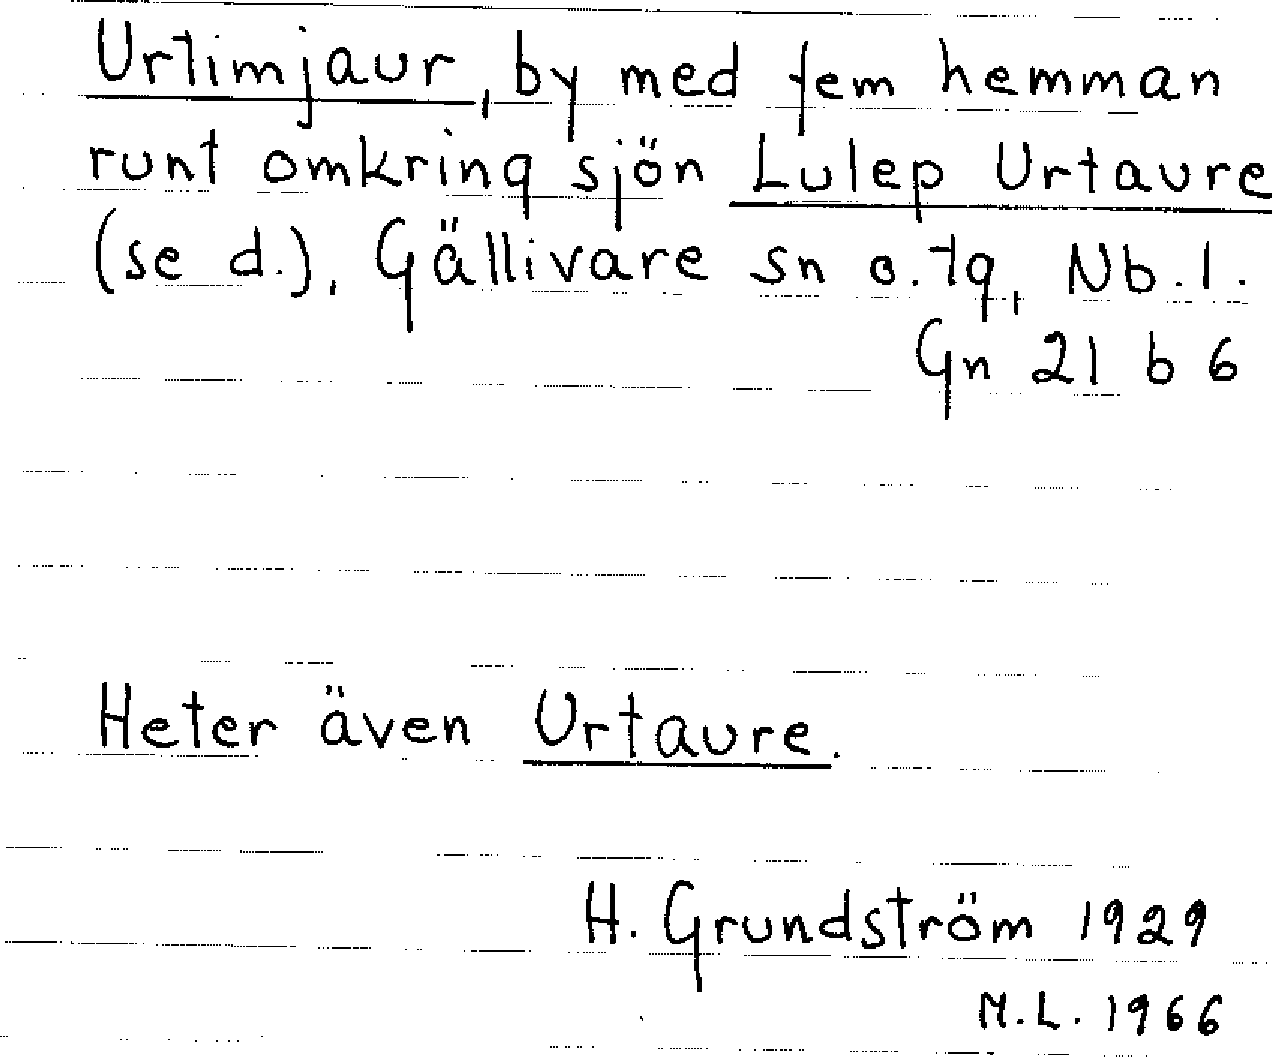 Urtimjaur, by med fem hemman
runt omkring sjön Lulep Urtaure
(se d.), Gällivare sn o. tg, Nb. l.
Gn 21 b 6
Heter även Urtaure.
H. Grundström 1929
M.L. 1966